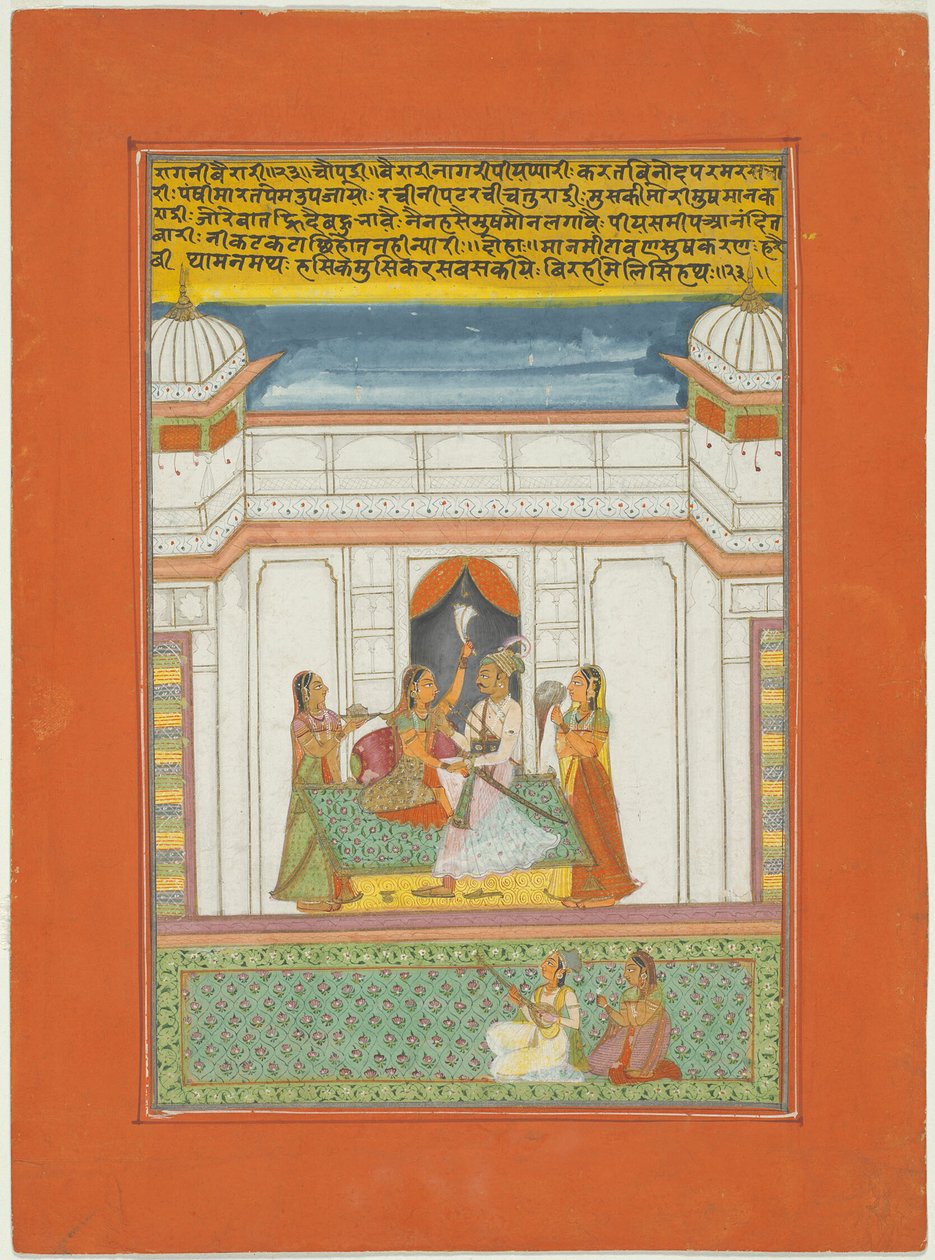 रागनी वैरारी॥२३॥ चौपई॥ वैरारी नागरी पीयप्यारी: करत बिनोद परम
री: पंषी मारत पेम उपजायो: रची नीपट रची चतुराई: मुसकी मोरी मुष मानक
राई: जोरे बात द्रिढै नैन हसै मुष मौन लगावै: पीय समीप आनंदित
बारी: नीकट कटाछि होत नही न्यारी:॥ दोहा॥ मान मीटावण सुष करण: हरै
बी था मनमथ: हसि कै मुसि कै रस बस कीयै: बिरही मेलि सि हथ:॥२३॥